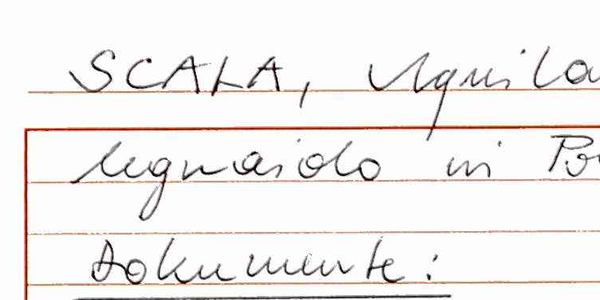 SCALA, Aquila
legnaiolo in
Dokumente: